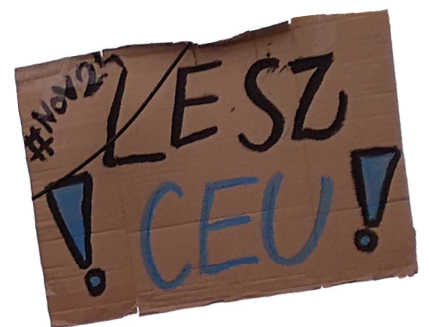 #NOV24
LESZ
! CEU !